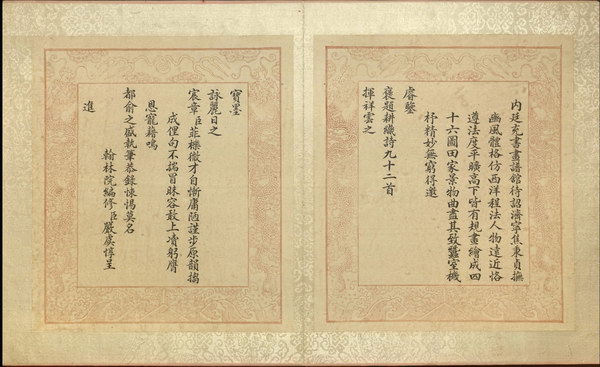 內廷充書畫譜舘待詔濟寧焦秉貞撫
豳風體格仿西洋程法人物遠近恪
遵法度平曠高下皆有規畫繪成四
十六圖田家景物曲盡其致蠶室機
杼精妙無窮得邀
睿鑒
襃題耕織詩九十二首
揮祥雲之
寶墨
詠麗日之
宸章臣菲檪微才自慚庸陋謹步原韻搊
成俚句不揣冒昧容敢上凟躬膺
恩寵藉鳴
都俞之盛執筆恭錄悚惕莫名
翰林院編修臣嚴虞惇呈
進